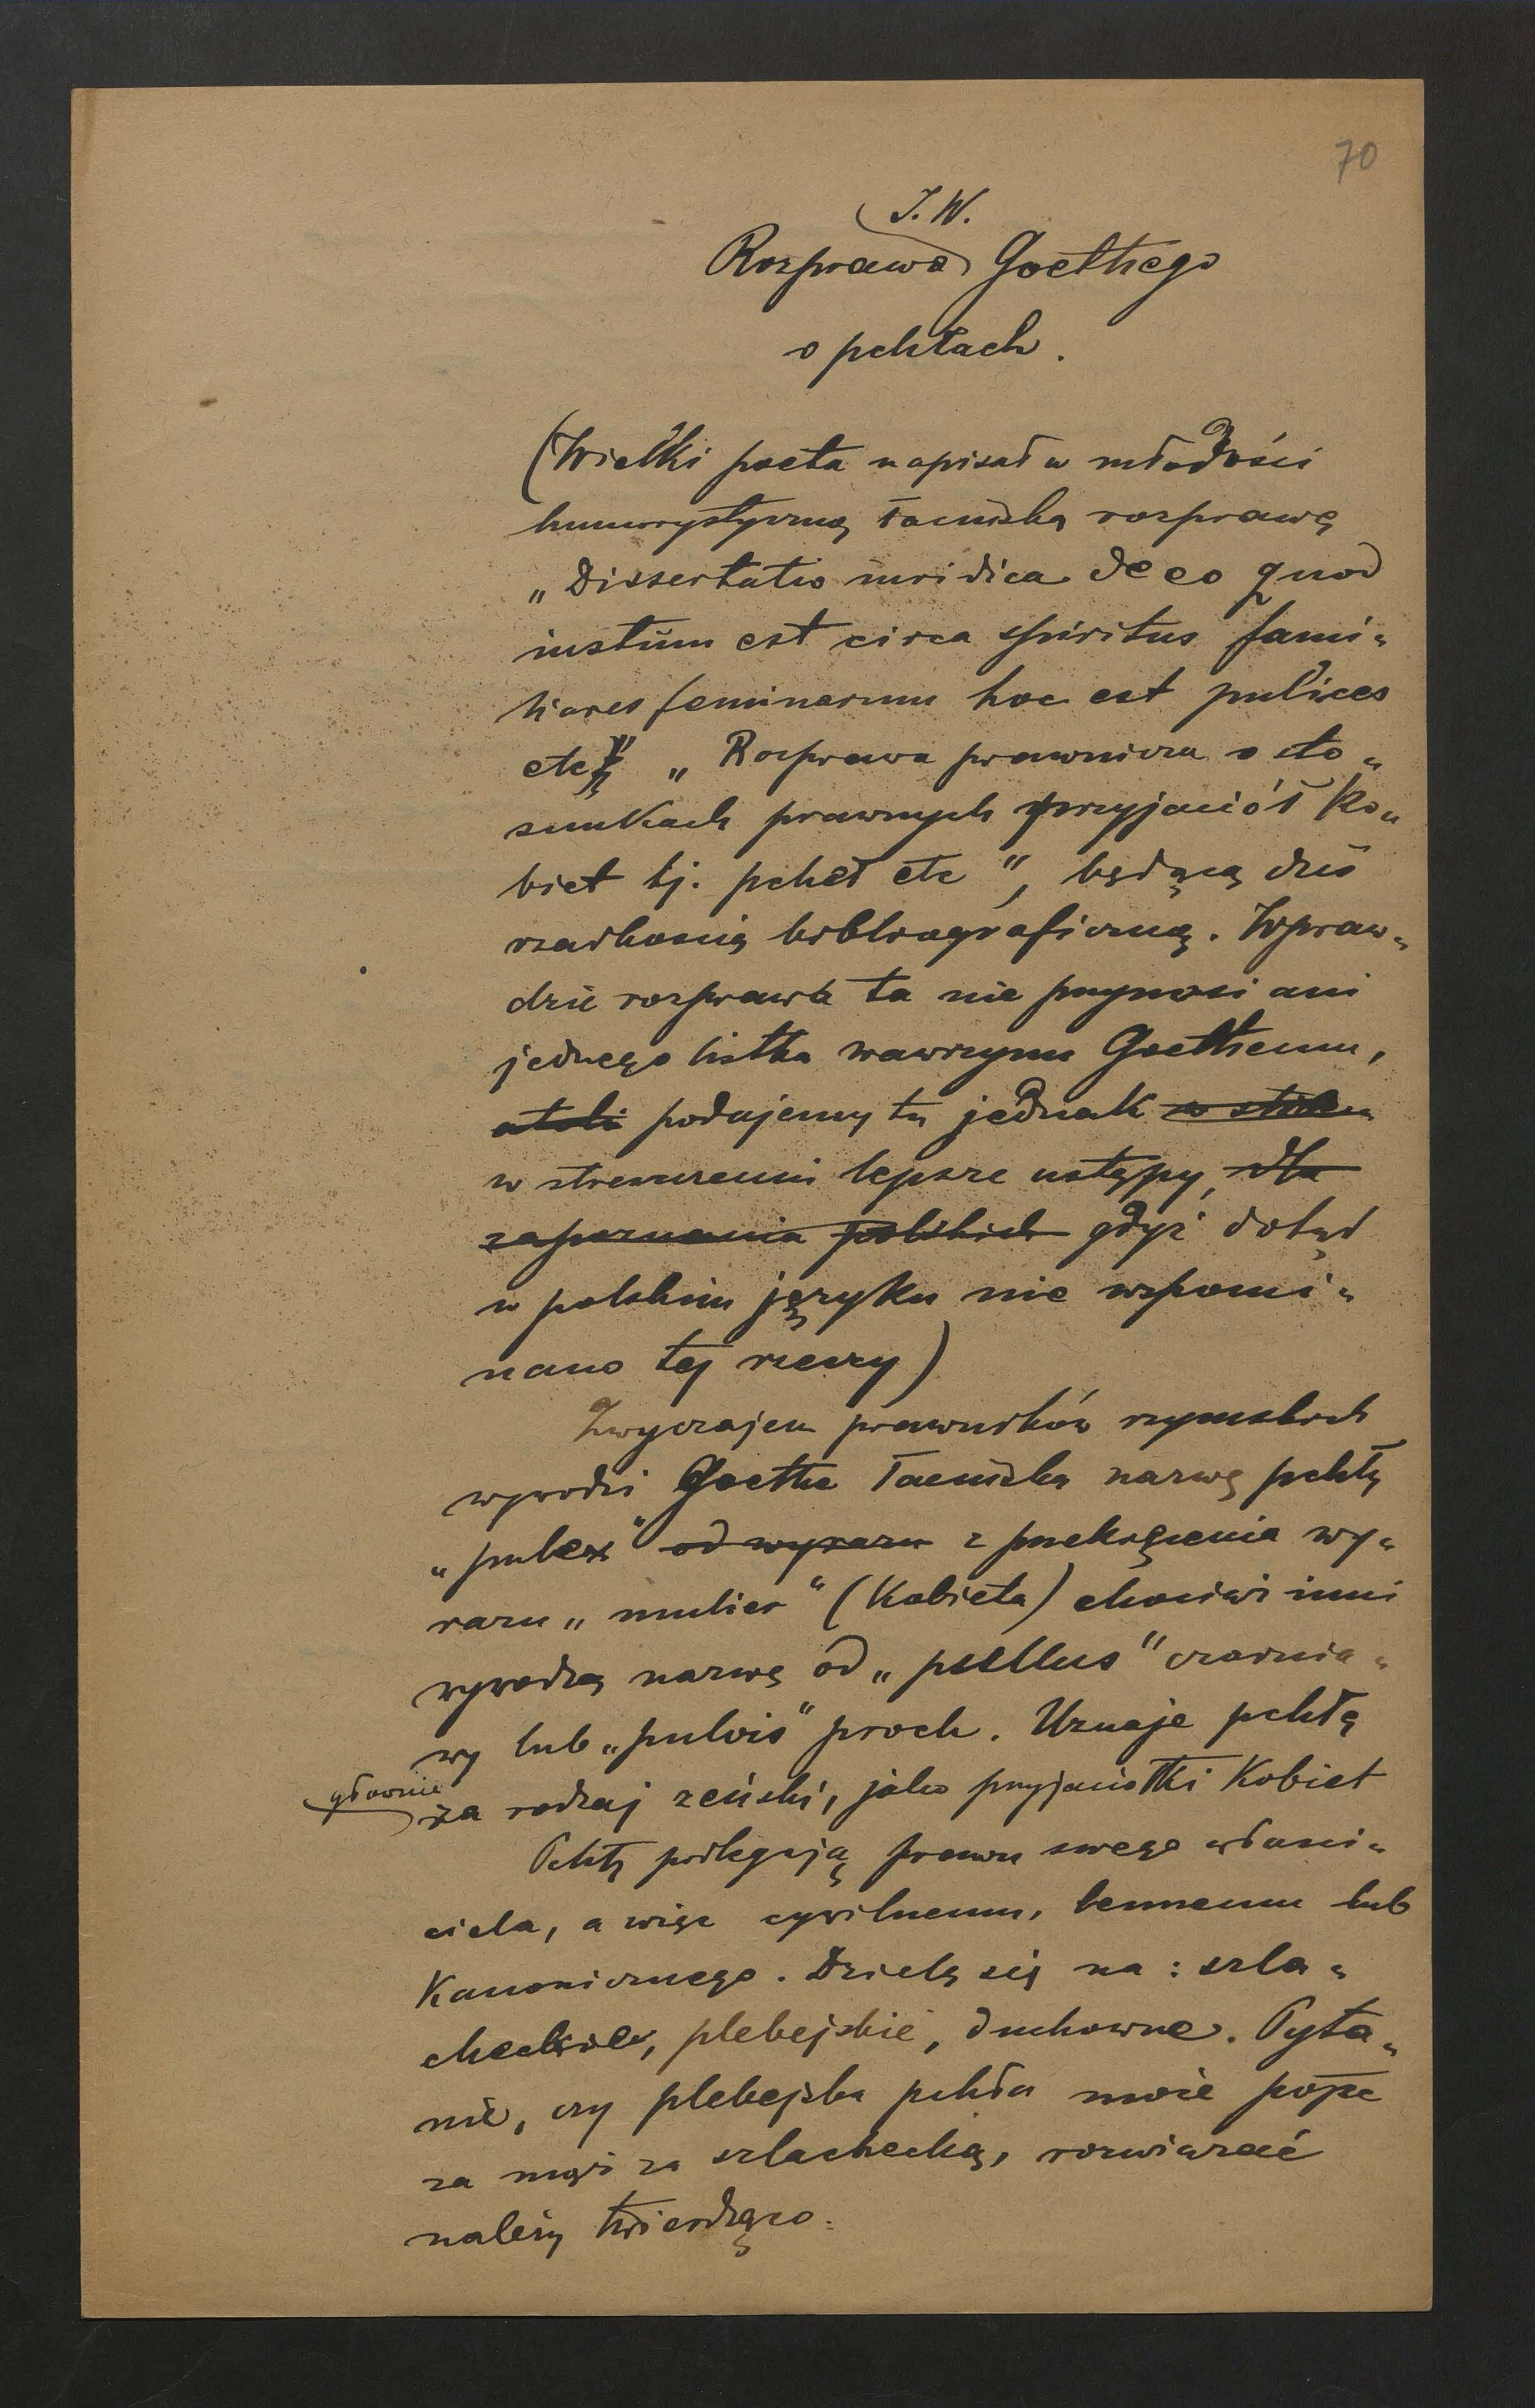 70
J. W.
Rozprawa Goethego
o pchłach.
(Wielki poeta napisał w młodości
humorystyczną łacińską rozprawę
„Dissertatio iuridica de eo quod
iustum est circa spiritus fami„
liares feminarum hoc est pulices
etc" „Rozprawa prawnicza o sto„
sunkach prawnych przyjaciół ko„
biet tj. pcheł etc", będącą dziś
rzadkością bibliograficzną. Wpraw„
dzie rozprawa ta nie przynosi ani
jednego listka wawrzynu Goethemu,
atoli podajemy tu jednak w stresz
w streszczeniu lepsze ustępy, dla
zapoznania polskich gdyż dotąd
w polskim języku nie wspomi„
nano tej rzeczy)
Zwyczajem prawników rzymskich
wywodzi Goethe łacińską nazwę pchły
„pulex" od wyrazu z przekręcenia wy„
razu „mulier" (kobieta) chociaż inni
wywodzą nazwę od „pullus" czarnia„
wy lub „pulvis" proch. Uznaje pchłę
głównie
za rodzaj żeński, jako przyjaciółki kobiet
Pchły podlegają prawu swego właści„
ciela, a więc cywilnemu, lennemu lub
kanonicznego. Dzielą się na: szla„
checkie, plebejskie, duchowne. Pyta„
nie, czy plebejska pchła może pójść
za mąż za szlachecką, rozwiązać
należy twierdząco.